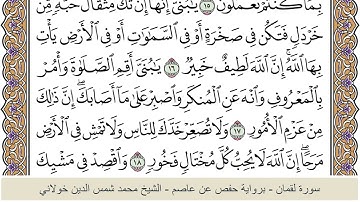 بِمَا كُنتُمْ تَعْمَلُونَ ١٥ يَٰبُنَىَّ إِنَّهَآ إِن تَكُ مِثْقَالَ حَبَّةٍ مِّنْ
خَرْدَلٍ فَتَكُن فِى صَخْرَةٍ أَوْ فِى ٱلسَّمَٰوَٰتِ أَوْ فِى ٱلْأَرْضِ يَأْتِ
بِهَا ٱللَّهُ ۚ إِنَّ ٱللَّهَ لَطِيفٌ خَبِيرٌ ١٦ يَٰبُنَىَّ أَقِمِ ٱلصَّلَوٰةَ وَأْمُرْ
بِٱلْمَعْرُوفِ وَٱنْهَ عَنِ ٱلْمُنكَرِ وَٱصْبِرْ عَلَىٰ مَآ أَصَابَكَ ۖ إِنَّ ذَٰلِكَ
مِنْ عَزْمِ ٱلْأُمُورِ ١٧ وَلَا تُصَعِّرْ خَدَّكَ لِلنَّاسِ وَلَا تَمْشِ فِى ٱلْأَرْضِ
مَرَحًا ۖ إِنَّ ٱللَّهَ لَا يُحِبُّ كُلَّ مُخْتَالٍ فَخُورٍ ١٨ وَٱقْصِدْ فِى مَشْيِكَ
سورة لقمان - برواية حفص عن عاصم - الشيخ محمد شمس الدين خولاني